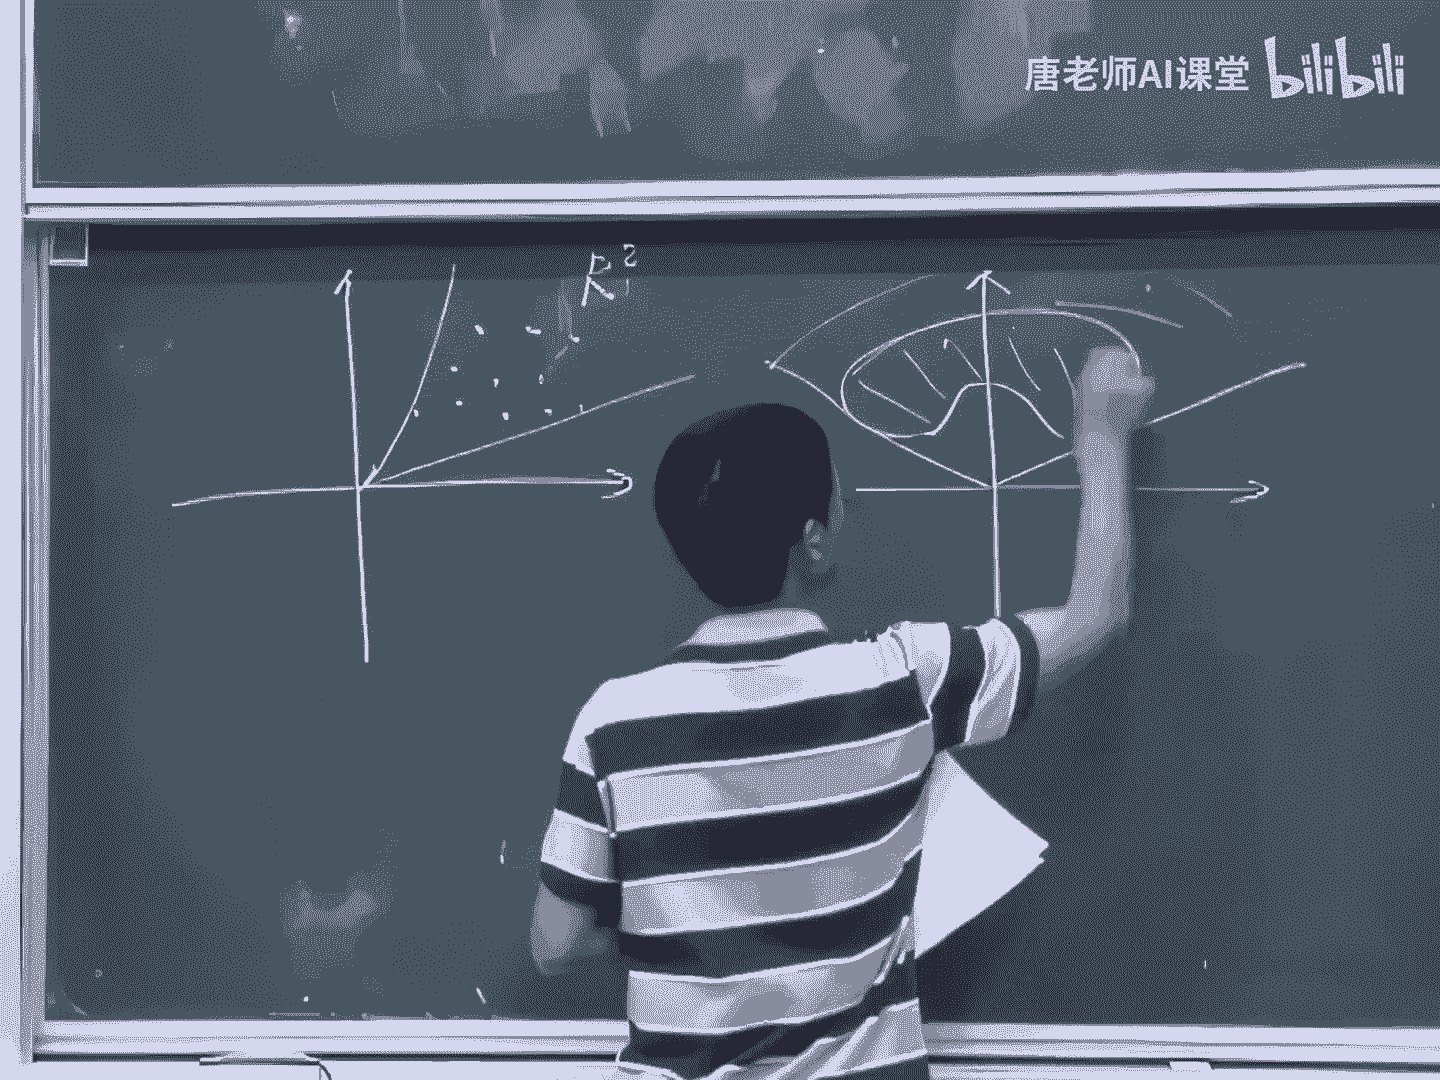 唐老师AI课堂 bilibili
R²